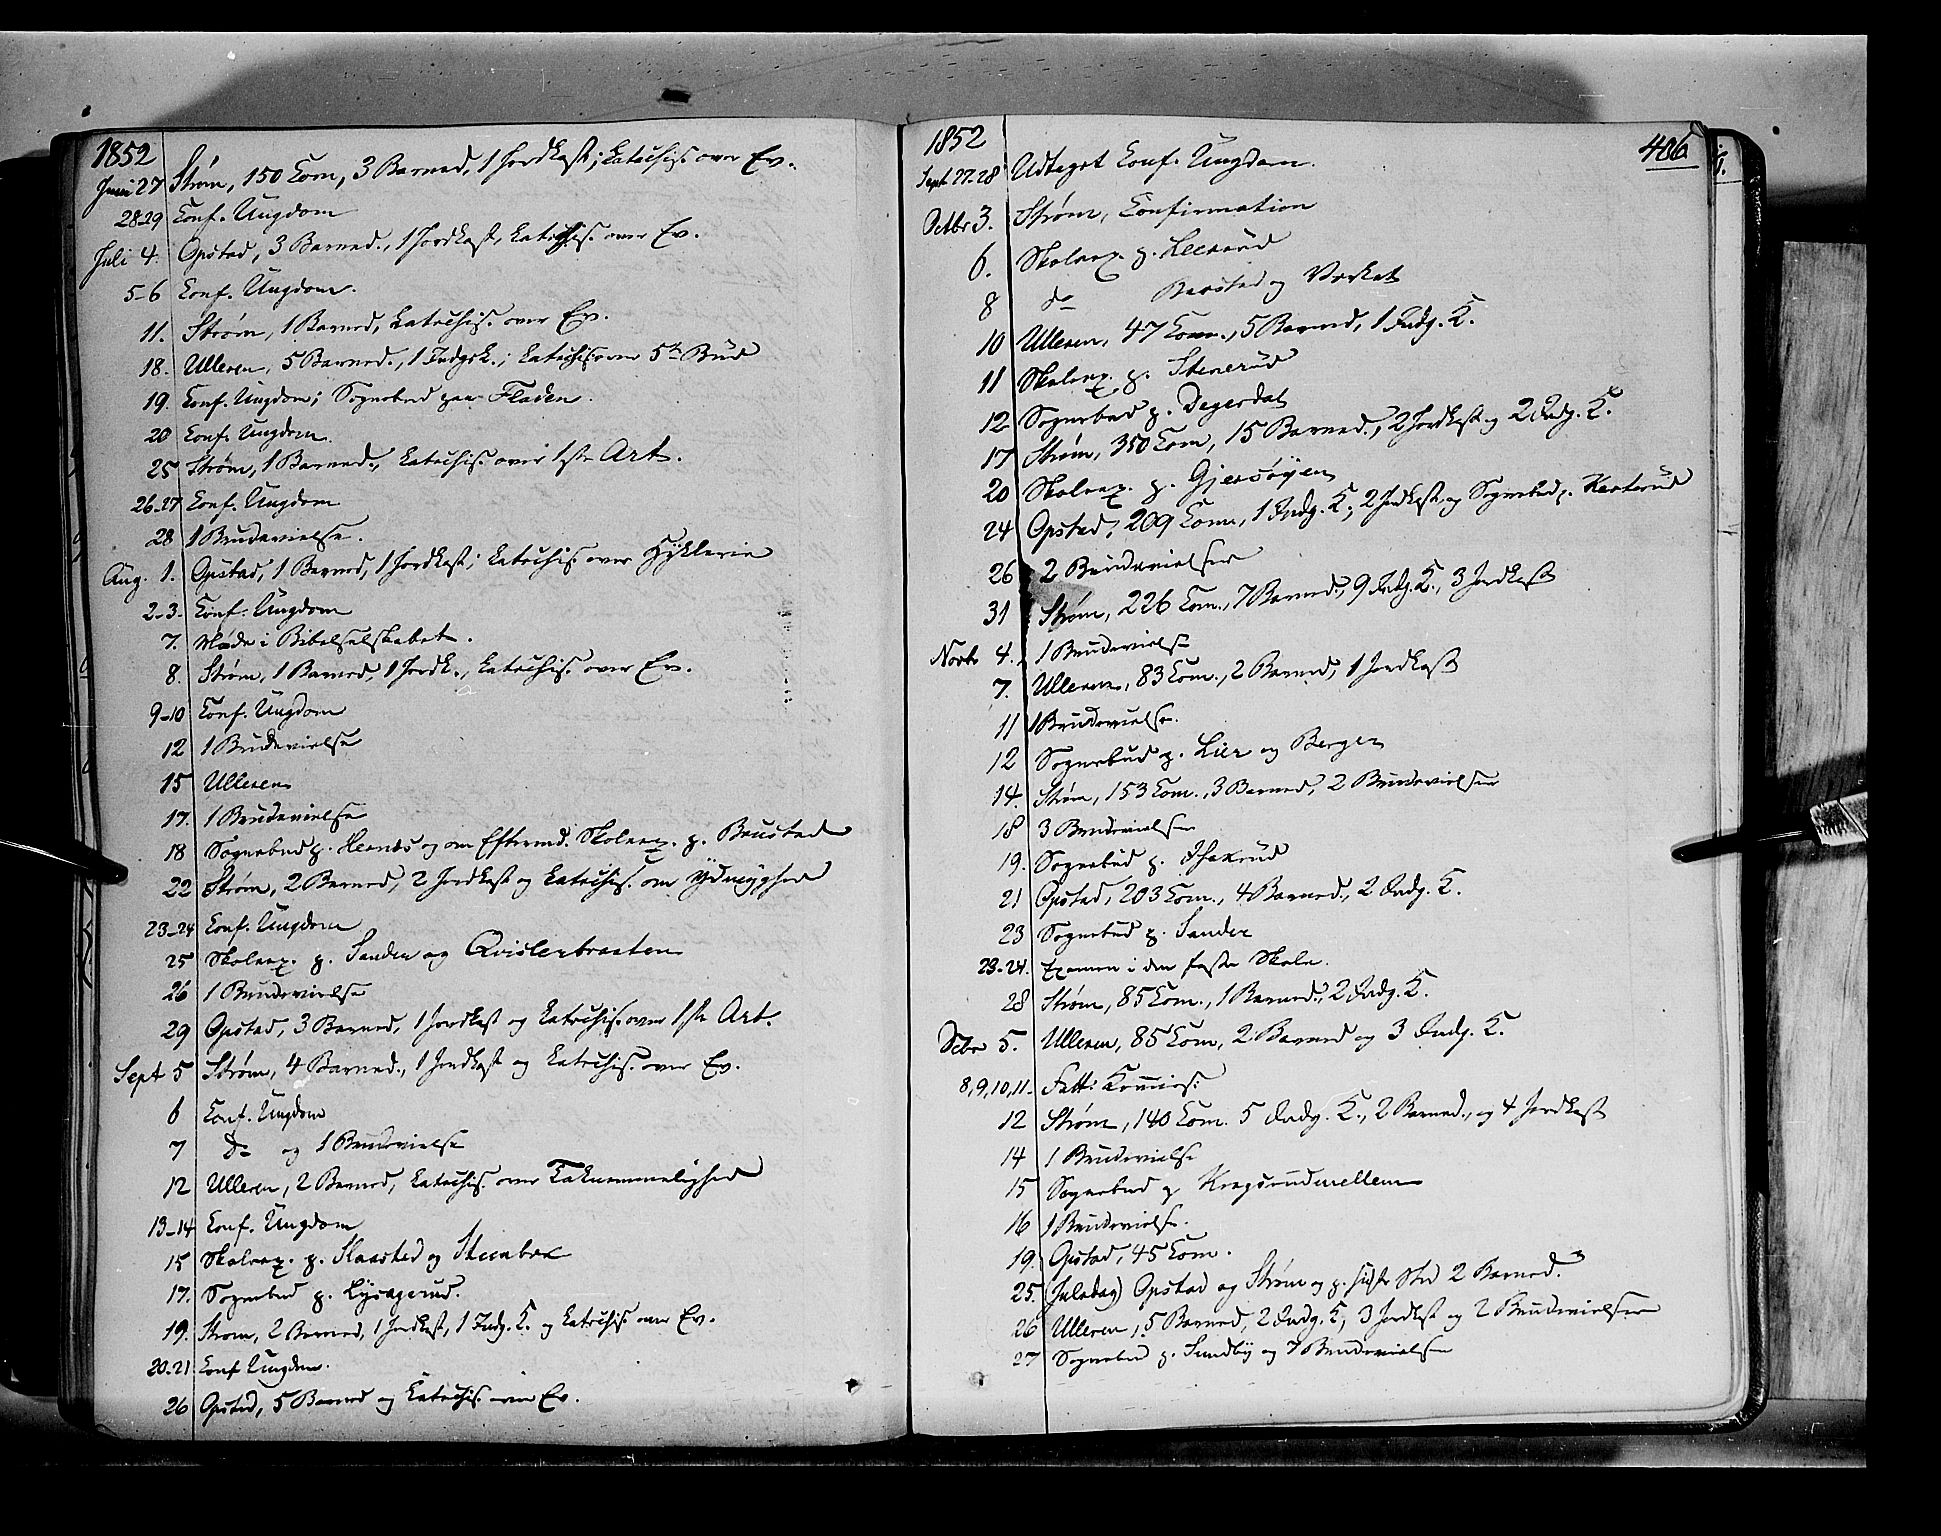 1852
Juni 27 Strøm, 150 Com, 3 Barned, 1 Jordkast; Catechis. over Ev.
28-29 Conf. Ungdom
Juli 4. Opstad, 3 Barned., 1 Jordkast, Catechis. over Ev.
5-6 Conf. Ungdom.
11. Strøm, 1 Barned, Catechis. over Ev.
18. Ulleren, 5 Barned., 1 Indgsk.; Catechis. over 5te Bud
19. Conf. Ungdom; Sognebud paa Fladen.
20 Conf. Ungdom.
25 Strøm, 1 Barned., Catechis. over 1ste Art.
26-27 Conf. Ungdom
28 1 Brudevielse.
Aug. 1. Opstad, 1 Barned, 1 Jordkast; Catechis. over Hyklerie
2-3. Conf. Ungdom
7. Møde i Bibelselskabet.
8. Strøm, 1 Barned, 1 Jordk., Catechis. over Ev.
9-10 Conf. Ungdom
12 1 Brudevielse
15 Ulleren
17. 1 Brudevielse
18 Sognebud p. Hernes og om Eftermd. Skolex. p. Brustad
22 Strøm, 2 Barned, 2 Jordkast og Catechis. om Ydmyghed
23-24 Conf. Ungdom
25 Skolex. p. Sander og Qvislerbraaten
26 1 Brudevielse
29 Opstad, 3 Barned, 1 Jordkast og Catechis. over 1ste Art.
Sept 5 Strøm, 4 Barned., 1 Jordkast og Catechis. over Ev.
6 Conf. Ungdom
7 do og 1 Brudevielse
12 Ulleren, 2 Barned, Catechis. over Taknemmelighed
13-14 Conf. Ungdom
15 Skolex. p. Slaasted og Steenbræ
17. Sognebud p. Lysagerud.
19. Strøm, 2 Barned, 1 Jordkast, 1 Indg. K. og Catechis. over Ev.
20-21 Conf Ungdom.
26 Opstad, 5 Barned og Catechis. over Ev.
1852 406
Sept 27.28 Udtaget Conf. Ungdom.
Octbr 3. Strøm, Confirmation
6. Skolex. p. Leerud
8 do Baastad og Værket
10 Ulleren, 47 Com., 5 Barned, 1 Indg. K.
11 Skolex. p. Stenerud
12 Sognebud p. Degerdal
17 Strøm, 350 Com, 15 Barned., 2 Jordkast og 2 Indg. K.
20 Skolex. p. Gjersøyen
24 Opstad, 209 Com, 1 Indg. K., 2 Jordkast og Sognebud p. Kesterud
26 2 Brudevielser
31 Strøm, 226 Com., 7 Barned., 9 Indg. K., 3 Jordkast
Novbr 4. 1 Brudevielse
7. Ulleren, 83 Com., 2 Barned, 1 Jordkast
11 1 Brudevielse.
12 Sognebud p. Lier og Berger
14. Strøm, 153 Com., 3 Barned, 2 Brudevielser
18 3 Brudevielser
19. Sognebud p.
21 Opstad, 203 Com., 4 Barned., 2 Indg. K.
23 Sognebud p. Sander
23-24. Examen i den faste Skole.
28 Strøm, 85 Com., 1 Barned., 2 Indg. K.
Dcbr 5. Ulleren, 85 Com, 2 Barned og 3 Indg. K.
8, 9, 10, 11. Fatt: Commis:
12 Strøm, 140 Com. 5 Indg. K., 2 Barned., og 4 Jordkast
14 1 Brudevielse
15 Sognebud p Kragsrudmellem
16 1 Brudevielse.
19. Opstad, 45 Com.
25. (Juledag) Opstad og Strøm og p. sidste Sted 2 Barned.
26 Ulleren, 5 Barned, 2 Indg. K, 3 Jordkast og 2 Brudevielser
27 Sognebud p. Sundby og 7 Brudevielser